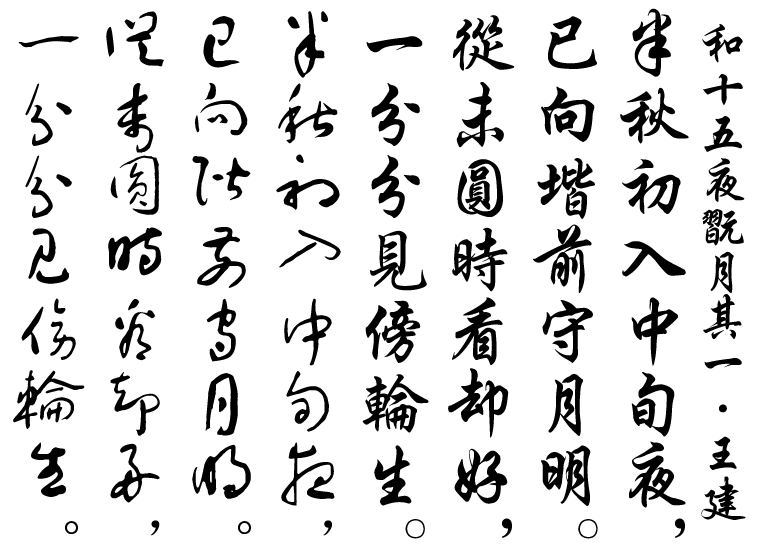 和十五夜翫月其一・王建
半秋初入中旬夜，
已向堦前守月明。
從未圓時看却好，
一分分見傍輪生。
半秋初入中旬夜，
已向階前守月明。
從未圓時看却好，
一分分見傍輪生。